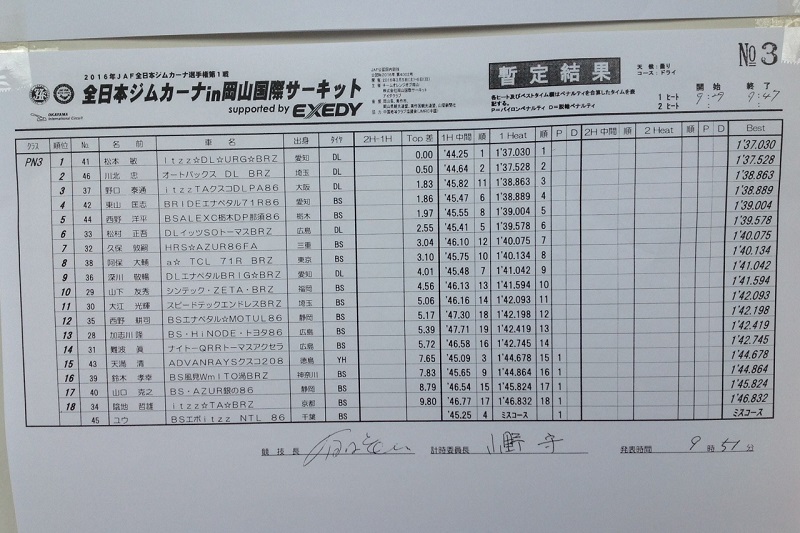 2016年JAF全日本ジムカーナ選手権第1戦
全日本ジムカーナin岡山国際サーキット
supported by EXEDY
OKAYAMA International Circuit
暫定結果
各ヒート及びベストタイム欄はペナルティを合算したタイムを表記する。
P=パイロンペナルティ D=脱輪ペナルティ
天候:曇り
コース:ドライ
№3
開始 終了
1ヒート 9:29 9:47
2ヒート : :
クラス 順位 No. 名前 車名 出身 タイヤ 2H-1H Top差 1H中間 順 1 Heat 順 P D 2H中間 順 2 Heat 順 P D Best
PN3 1 41 松本 敏 itzz☆DL☆URG☆BRZ 愛知 DL 0.00 '44.25 1 1'37.030 1 1'37.030
2 46 川北 忠 オートバックス DL BRZ 埼玉 DL 0.50 '44.64 2 1'37.528 2 1'37.528
3 37 野口 泰通 itzzTAクスコDLPA86 大阪 DL 1.83 '45.82 11 1'38.863 3 1'38.863
4 42 東山 匡志 BRIDEエナペタル71R86 愛知 BS 1.86 '45.47 6 1'38.889 4 1'38.889
5 44 西野 洋平 BSALEXC栃木DP那須86 栃木 BS 1.97 '45.55 8 1'39.004 5 1'39.004
6 33 松村 正吾 DLイッツSOトーマスBRZ 広島 DL 2.55 '45.41 5 1'39.578 6 1'39.578
7 32 久保 敦嗣 HRS☆AZUR86FA 三重 BS 3.04 '46.10 12 1'40.075 7 1'40.075
8 38 阿保 大輔 a☆ TCL 71R BRZ 東京 BS 3.10 '45.75 10 1'40.134 8 1'40.134
9 36 深川 敬暢 DLエナペタルBRIG☆BRZ 愛知 DL 4.01 '45.48 7 1'41.042 9 1'41.042
10 29 山下 友秀 シンテック・ZETA・BRZ 福岡 BS 4.56 '46.13 13 1'41.594 10 1'41.594
11 30 大江 光輝 スピードテックエンドレスBRZ 埼玉 BS 5.06 '46.16 14 1'42.093 11 1'42.093
12 35 西野 耕司 BSエナペタル☆MOTUL86 静岡 BS 5.17 '47.30 18 1'42.198 12 1'42.198
13 28 加志川 隆 BS・HiNODE・トヨタ86 広島 BS 5.39 '47.71 19 1'42.419 13 1'42.419
14 31 難波 眞 ナイトーQRRトーマスアクセラ 広島 BS 5.72 '46.58 16 1'42.745 14 1'42.745
15 43 天満 清 ADVANRAYSクスコ208 徳島 YH 7.65 '45.09 3 1'44.678 15 1 1'44.678
16 39 鈴木 孝幸 BS風見WmITO渦BRZ 神奈川 BS 7.83 '45.65 9 1'44.864 16 1 1'44.864
17 40 山口 克之 BS・AZUR銀の86 静岡 BS 8.79 '46.54 15 1'45.824 17 1 1'45.824
18 34 陰地 哲雄 itzz☆TA☆BRZ 京都 BS 9.80 '46.77 17 1'46.832 18 1 1'46.832
45 ユウ BSエボitzz NTL 86 千葉 BS '45.25 4 ミスコース 1 ミスコース
競技長 計時委員長 小野 守 発表時間 9時51分